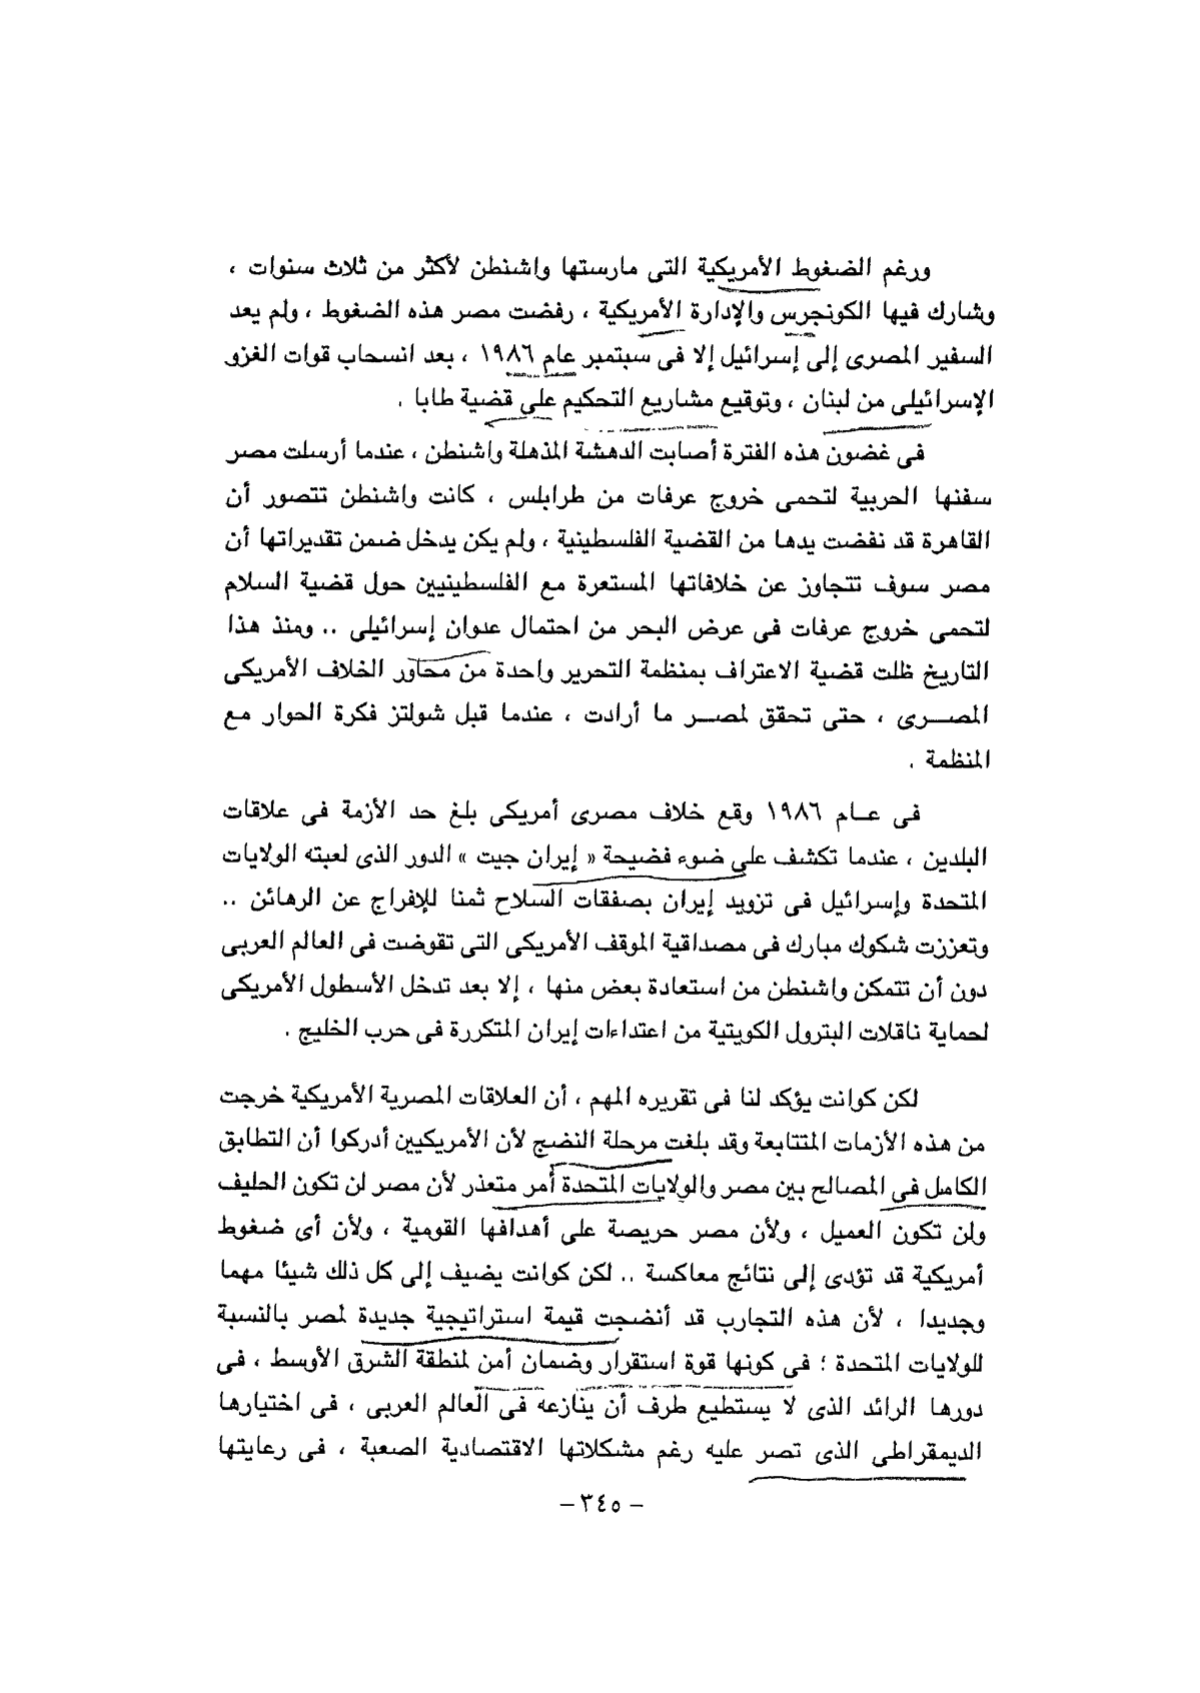 ورغم الضغوط الأمريكية التى مارستها واشنطن لأكثر من ثلاث سنوات ،
وشارك فيها الكونجرس والإدارة الأمريكية ، رفضت مصر هذه الضغوط ، ولم يعد
السفير المصرى إلى إسرائيل إلا فى سبتمبر عام ١٩٨٦ ، بعد انسحاب قوات الغزو
الإسرائيلى من لبنان ، وتوقيع مشاريع التحكيم على قضية طابا .
فى غضون هذه الفترة أصابت الدهشة المذهلة واشنطن ، عندما أرسلت مصر
سفنها الحربية لتحمى خروج عرفات من طرابلس ، كانت واشنطن تتصور أن
القاهرة قد نفضت يدها من القضية الفلسطينية ، ولم يكن يدخل ضمن تقديراتها أن
مصر سوف تتجاوز عن خلافاتها المستعرة مع الفلسطينيين حول قضية السلام
لتحمى خروج عرفات فى عرض البحر من احتمال عدوان إسرائيلى .. ومنذ هذا
التاريخ ظلت قضية الاعتراف بمنظمة التحرير واحدة من محاور الخلاف الأمريكى
المصــرى ، حتى تحقق لمصــر ما أرادت ، عندما قبل شولتز فكرة الحوار مع
المنظمة .
فى عــام ١٩٨٦ وقع خلاف مصرى أمريكى بلغ حد الأزمة فى علاقات
البلدين ، عندما تكشف على ضوء فضيحة « إيران جيت » الدور الذى لعبته الولايات
المتحدة وإسرائيل فى تزويد إيران بصفقات السلاح ثمنا للإفراج عن الرهائن ..
وتعززت شكوك مبارك فى مصداقية الموقف الأمريكى التى تقوضت فى العالم العربى
دون أن تتمكن واشنطن من استعادة بعض منها ، إلا بعد تدخل الأسطول الأمريكى
لحماية ناقلات البترول الكويتية من اعتداءات إيران المتكررة فى حرب الخليج .
لكن كوانت يؤكد لنا فى تقريره المهم ، أن العلاقات المصرية الأمريكية خرجت
من هذه الأزمات المتتابعة وقد بلغت مرحلة النضج لأن الأمريكيين أدركوا أن التطابق
الكامل فى المصالح بين مصر والولايات المتحدة أمر متعذر لأن مصر لن تكون الحليف
ولن تكون العميل ، ولأن مصر حريصة على أهدافها القومية ، ولأن أى ضغوط
أمريكية قد تؤدى إلى نتائج معاكسة .. لكن كوانت يضيف إلى كل ذلك شيئا مهما
وجديدا ، لأن هذه التجارب قد أنضجت قيمة استراتيجية جديدة لمصر بالنسبة
للولايات المتحدة ؛ فى كونها قوة استقرار وضمان أمن لمنطقة الشرق الأوسط ، فى
دورها الرائد الذى لا يستطيع طرف أن ينازعه فى العالم العربى ، فى اختيارها
الديمقراطى الذى تصر عليه رغم مشكلاتها الاقتصادية الصعبة ، فى رعايتها
– ٣٤٥ –